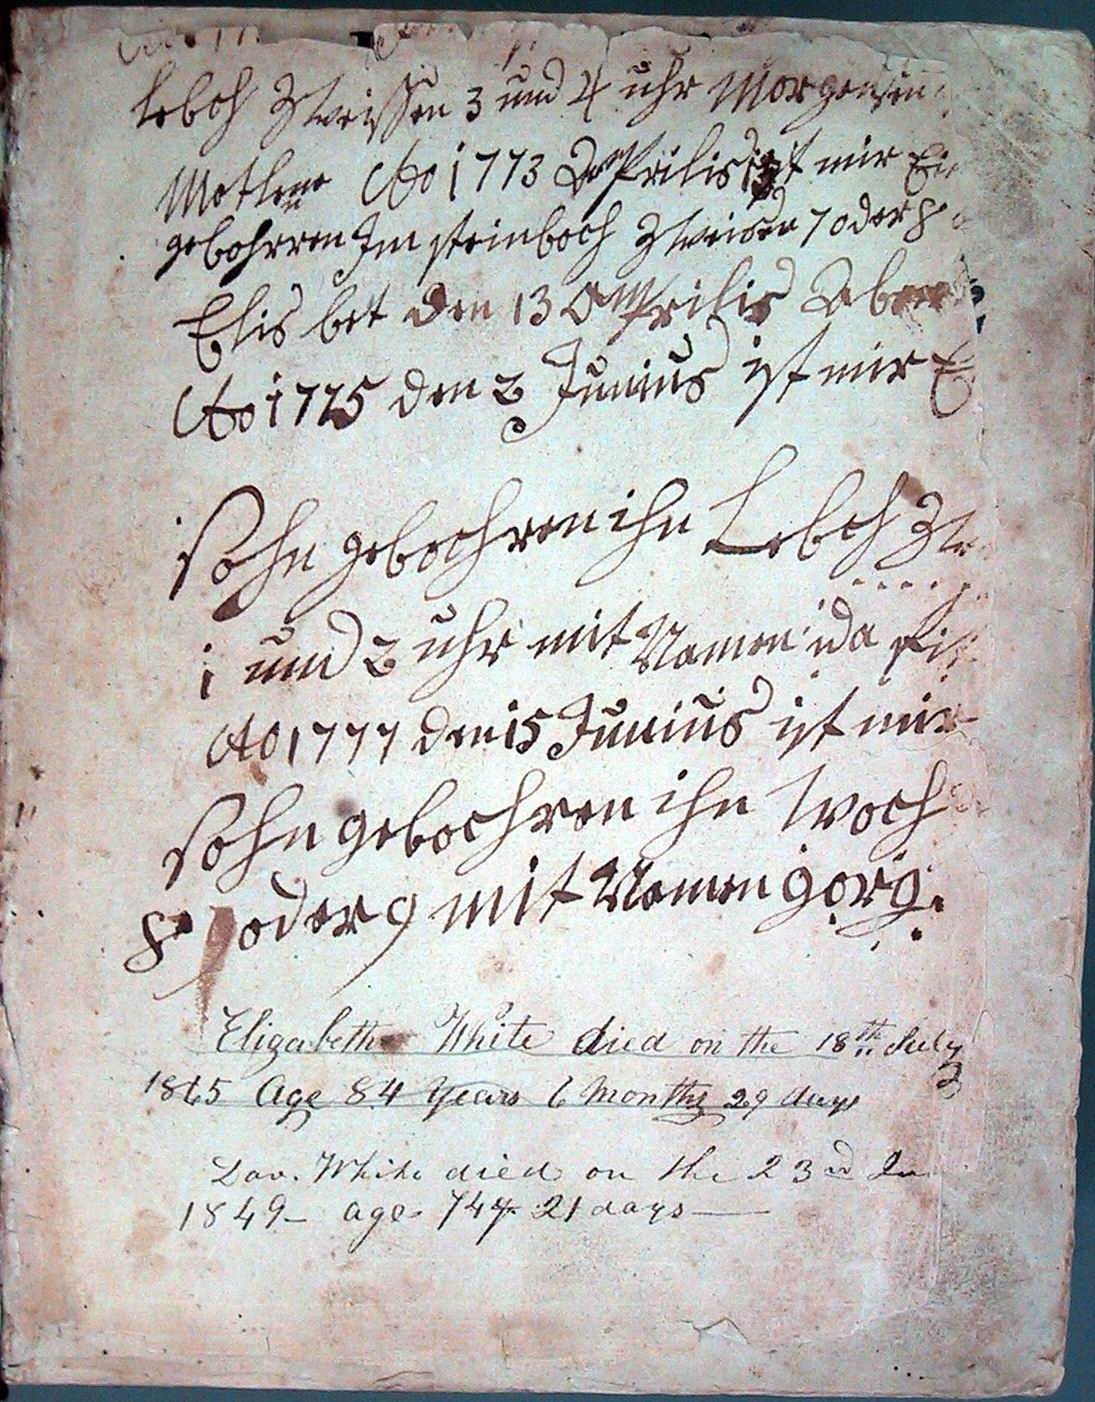 lebch Zweissen 3 und 4 uhr Morgens
Ao 1773 Apprilis ist mir Ein
gebohrren Im steinboch Zweisen 7 oder 8
Elis bet den 13 Apprilis
Ao 1775 den 2 Junius ist mir E
sohn gebochren ihn Lebch Zw
i und 2 uhr mit Namen
Ao 1777 den 15 Junius ist mir
sohn gebochren ihn woch
8 oder 9 mit Namen görg.
Elizabeth White died on the 18th July
1865 Age 84 Years 6 Months 29 days
Dav. White died on the 23rd
1849 – age 74y 21 days